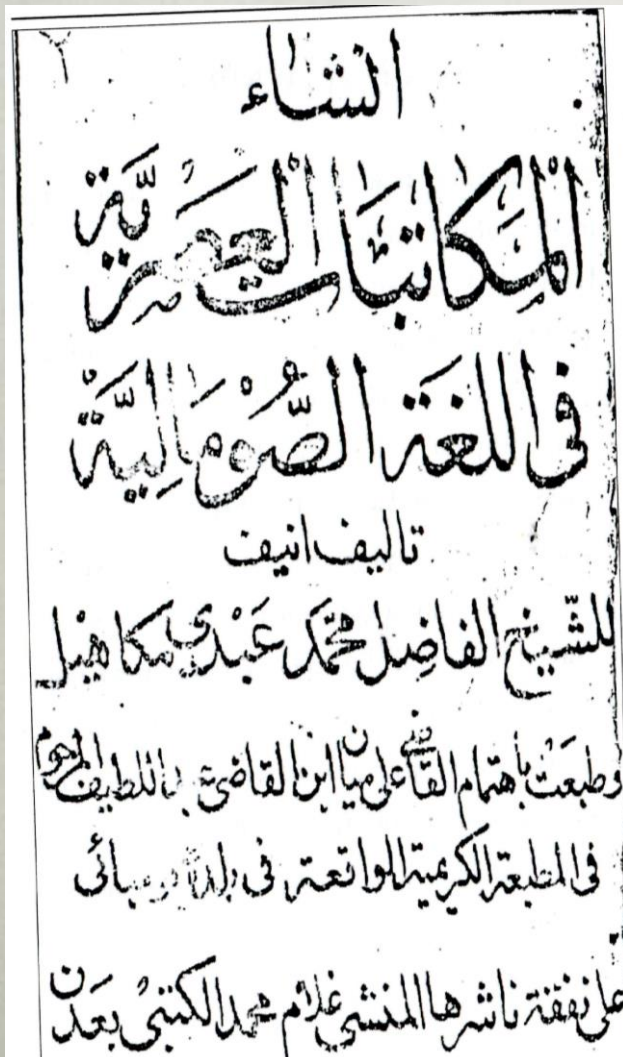 انشاء
المكاتبات العصرية
فى اللغة الصُّوْمَالِيَّة
تاليف انيف
للشّيخ الفاضِل محمّد عَبْدِي مكاهيل
وطبعَتْ باهتمام القاضى على ميان ابن القاضى المرحوم
فى المطبعة الكريمية الواقعة فى بلدة بومبائى
على نفقة ناشرها المنشى غلام محمد الكتبى بعَدَن